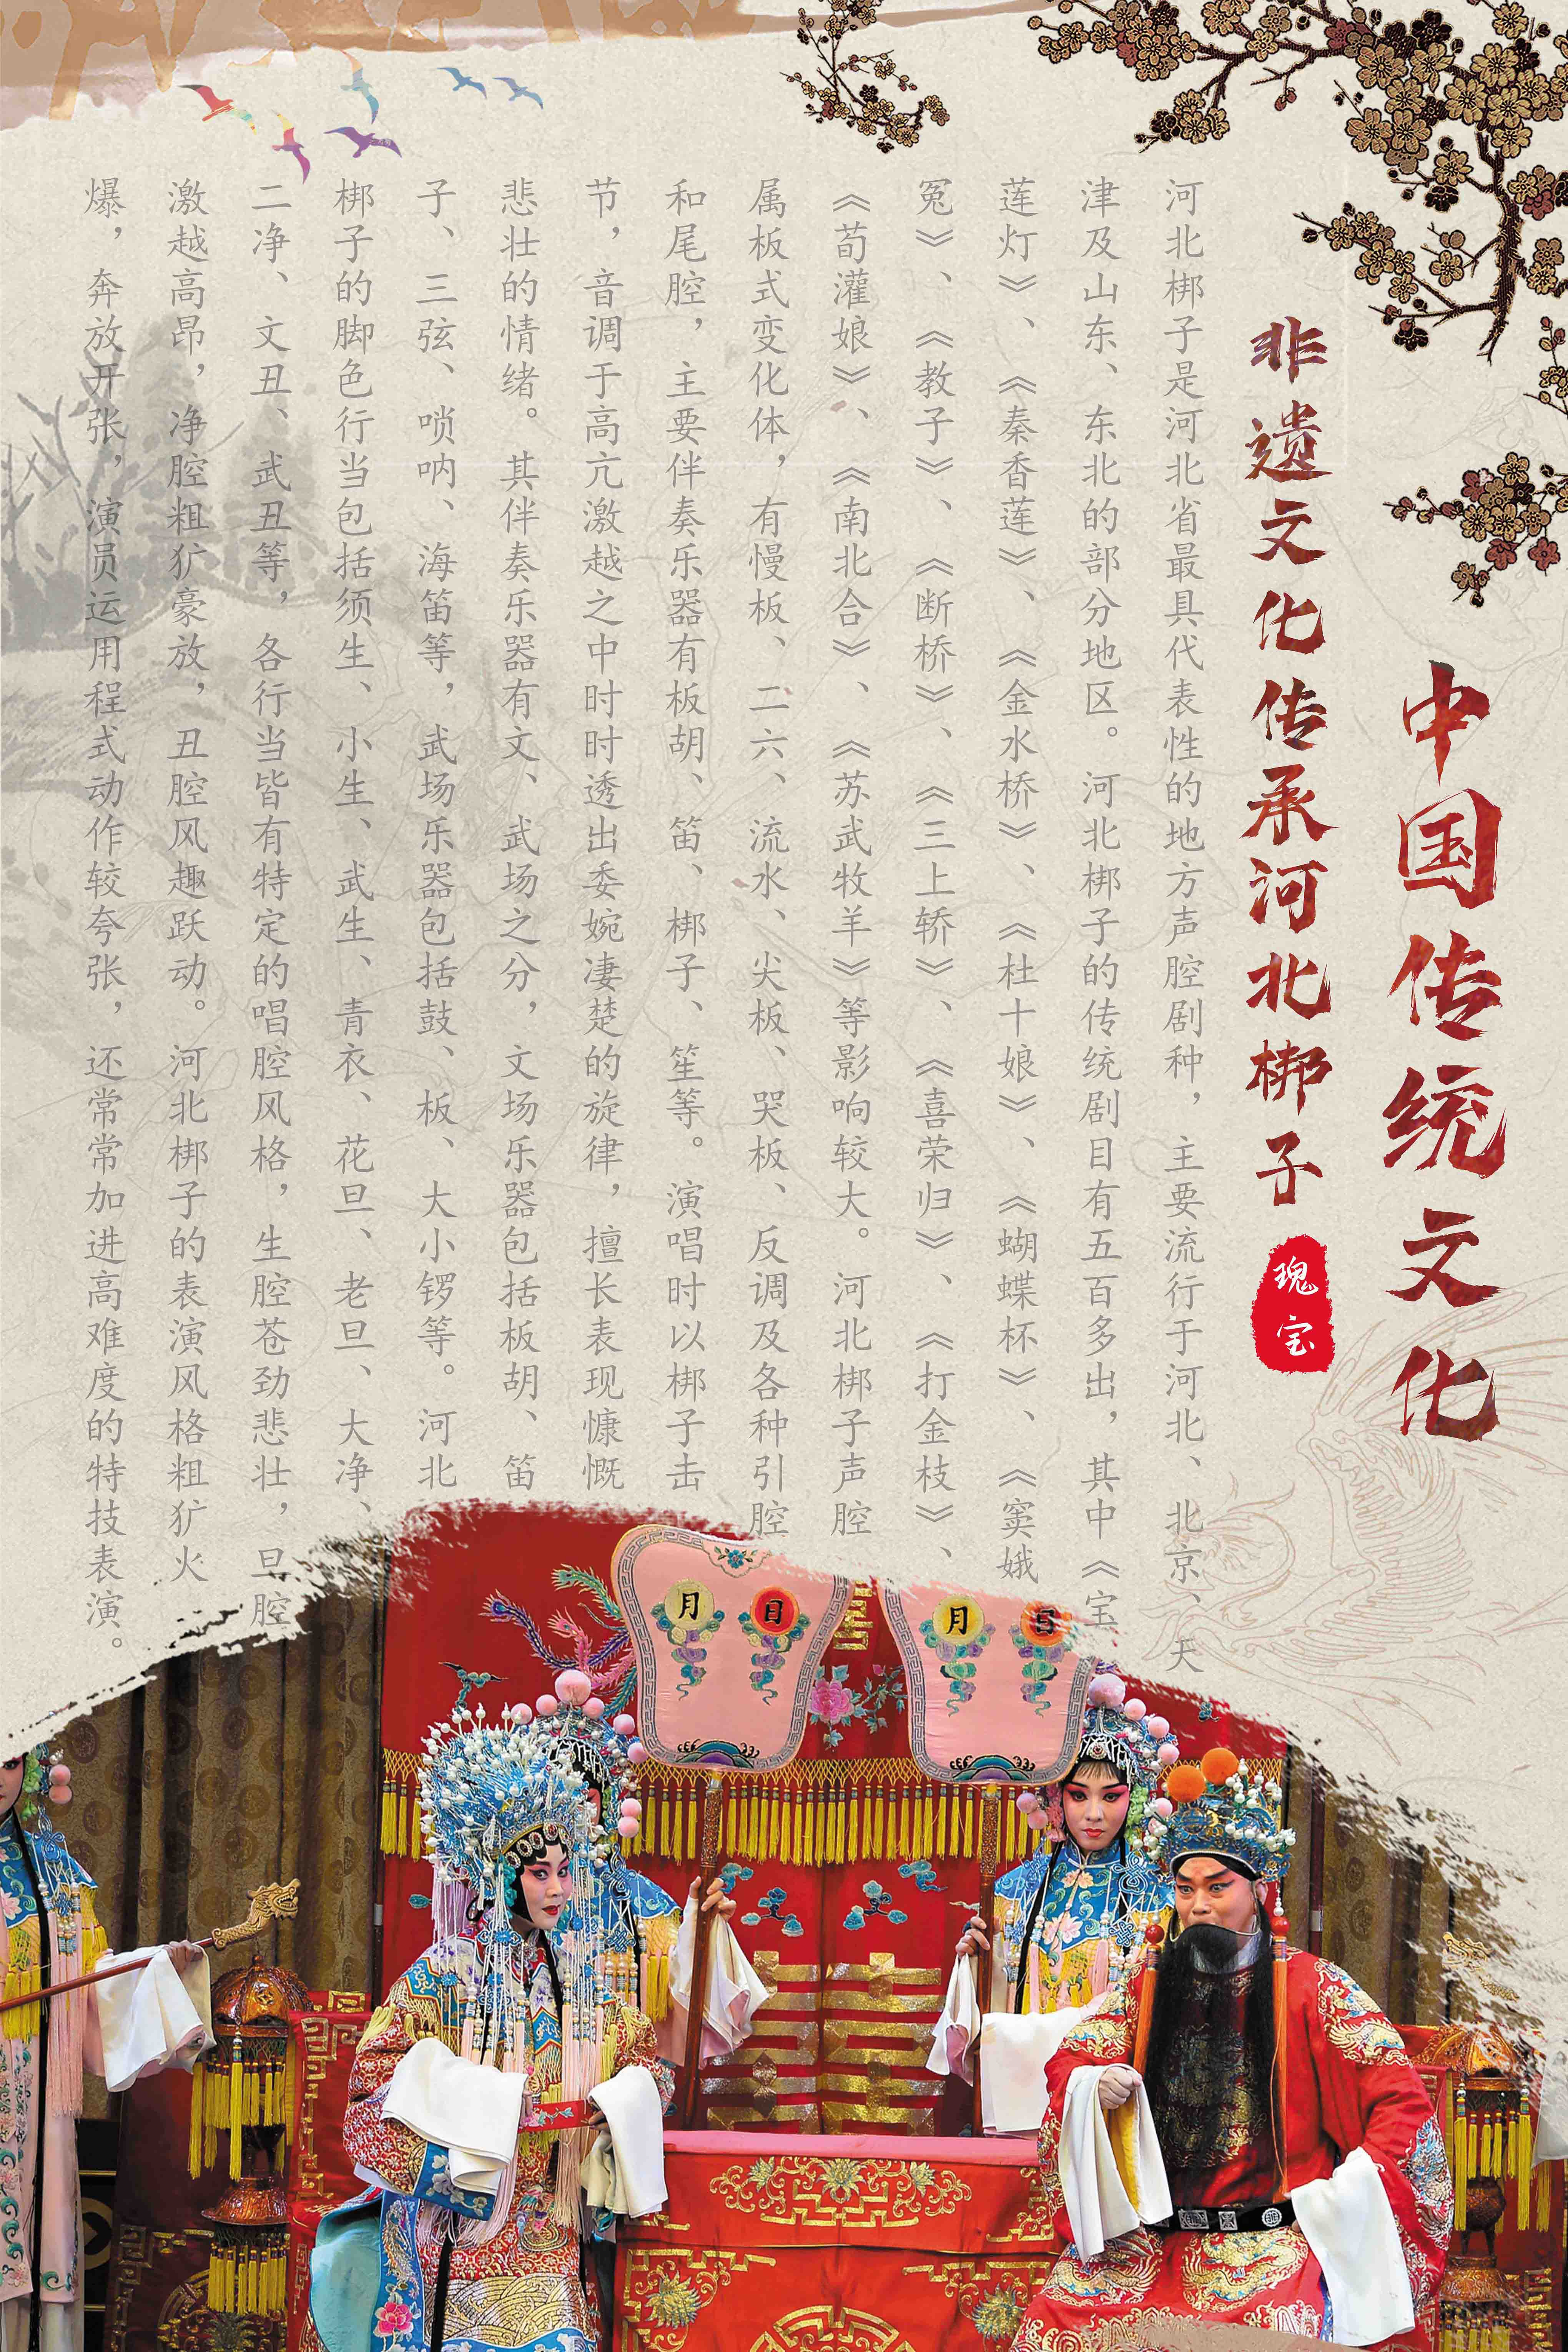 中国传统文化
非遗文化传承河北梆子
瑰宝
河北梆子是河北省最具代表性的地方声腔剧种，主要流行于河北、北京、天
津及山东、东北的部分地区。河北梆子的传统剧目有五百多出，其中《宝
莲灯》、《秦香莲》、《金水桥》、《杜十娘》、《蝴蝶杯》、《窦娥
冤》、《教子》、《断桥》、《三上轿》、《喜荣归》、《打金枝》、
《荀灌娘》、《南北合》、《苏武牧羊》等影响较大。河北梆子声腔
属板式变化体，有慢板、二六、流水、尖板、哭板、反调及各种引腔
和尾腔，主要伴奏乐器有板胡、笛、梆子、笙等。演唱时以梆子击
节，音调于高亢激越之中时时透出委婉凄楚的旋律，擅长表现慷慨
悲壮的情绪。其伴奏乐器有文、武场之分，文场乐器包括板胡、笛
子、三弦、唢呐、海笛等，武场乐器包括鼓、板、大小锣等。河北
梆子的脚色行当包括须生、小生、武生、青衣、花旦、老旦、大净、
二净、文丑、武丑等，各行当皆有特定的唱腔风格，生腔苍劲悲壮，旦腔
激越高昂，净腔粗犷豪放，丑腔风趣跃动。河北梆子的表演风格粗犷火
爆，奔放开张，演员运用程式动作较夸张，还常常加进高难度的特技表演。
月 日
月 日